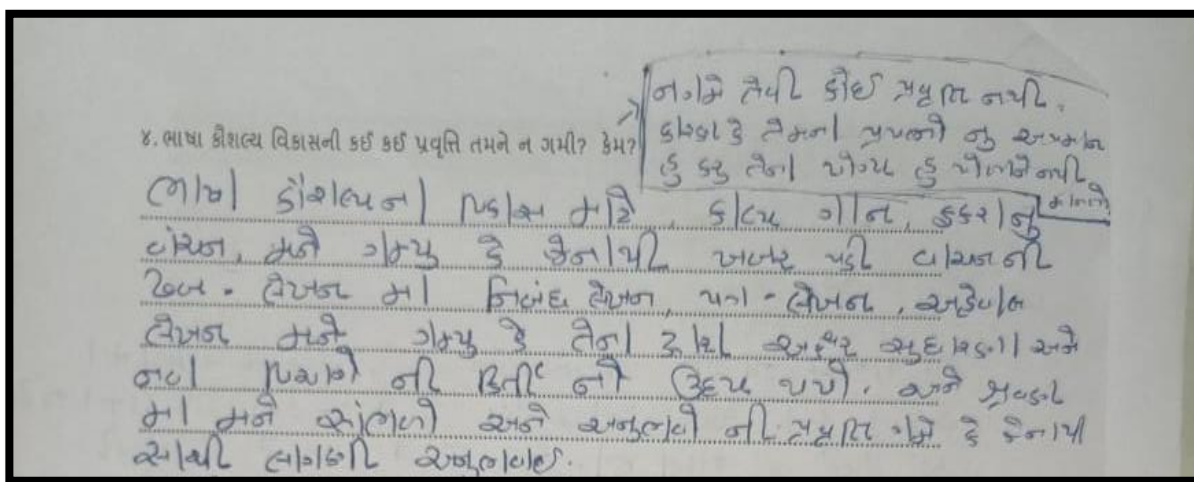 ૪. ભાષા કૌશલ્ય વિકાસની કઈ કઈ પ્રવૃત્તિ તમને ન ગમી? કેમ?
નગમે તેવી કોઈ પ્રવૃતિ નથી.
કારણ કે તેમના પ્રયત્નો નુ અપમાન
હુ કરુ તેના યોગ્ય હુ પોતાને નથી
માનતો
ભાષા કૌશલ્યના વિકાસ માટે, કાવ્ય ગાન, ફકરાનુ
વાંચન, મને ગમ્યુ કે જેનાથી ખબર પડી વાંચનની
ઢબ. લેખન મા નિબંધ લેખન, પત્ર-લેખન, અહેવાલ
લેખન મને ગમ્યુ કે તેના દ્વારા અક્ષર સુધારણા અને
નવા વિચારો ની નો ઉદય થયો. અને શ્રવણ
મા મને સાંભળો અને અનુભવો ની પ્રવૃતિ ગમે કે જેનાથી
સાચી લાગણી અનુભવાઈ.